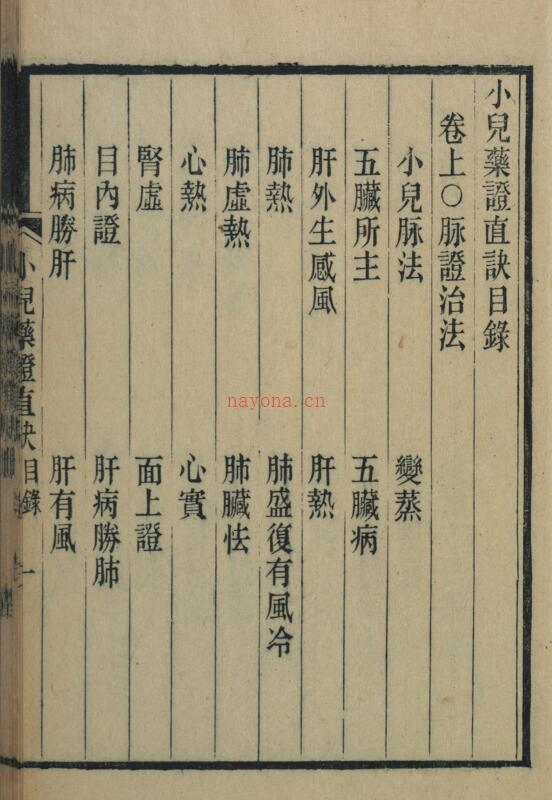 小兒藥證直訣目錄
卷上○脉證治法
小兒脉法　變蒸
五臟所主　五臟病
肝外生感風　肝熱
肺熱　肺盛復有風冷
肺虛熱　肺臟怯
心熱　心實
腎虛　面上證
目內證　肝病勝肺
肺病勝肝　肝有風
小兒藥證直訣目錄　一
nayona.cn